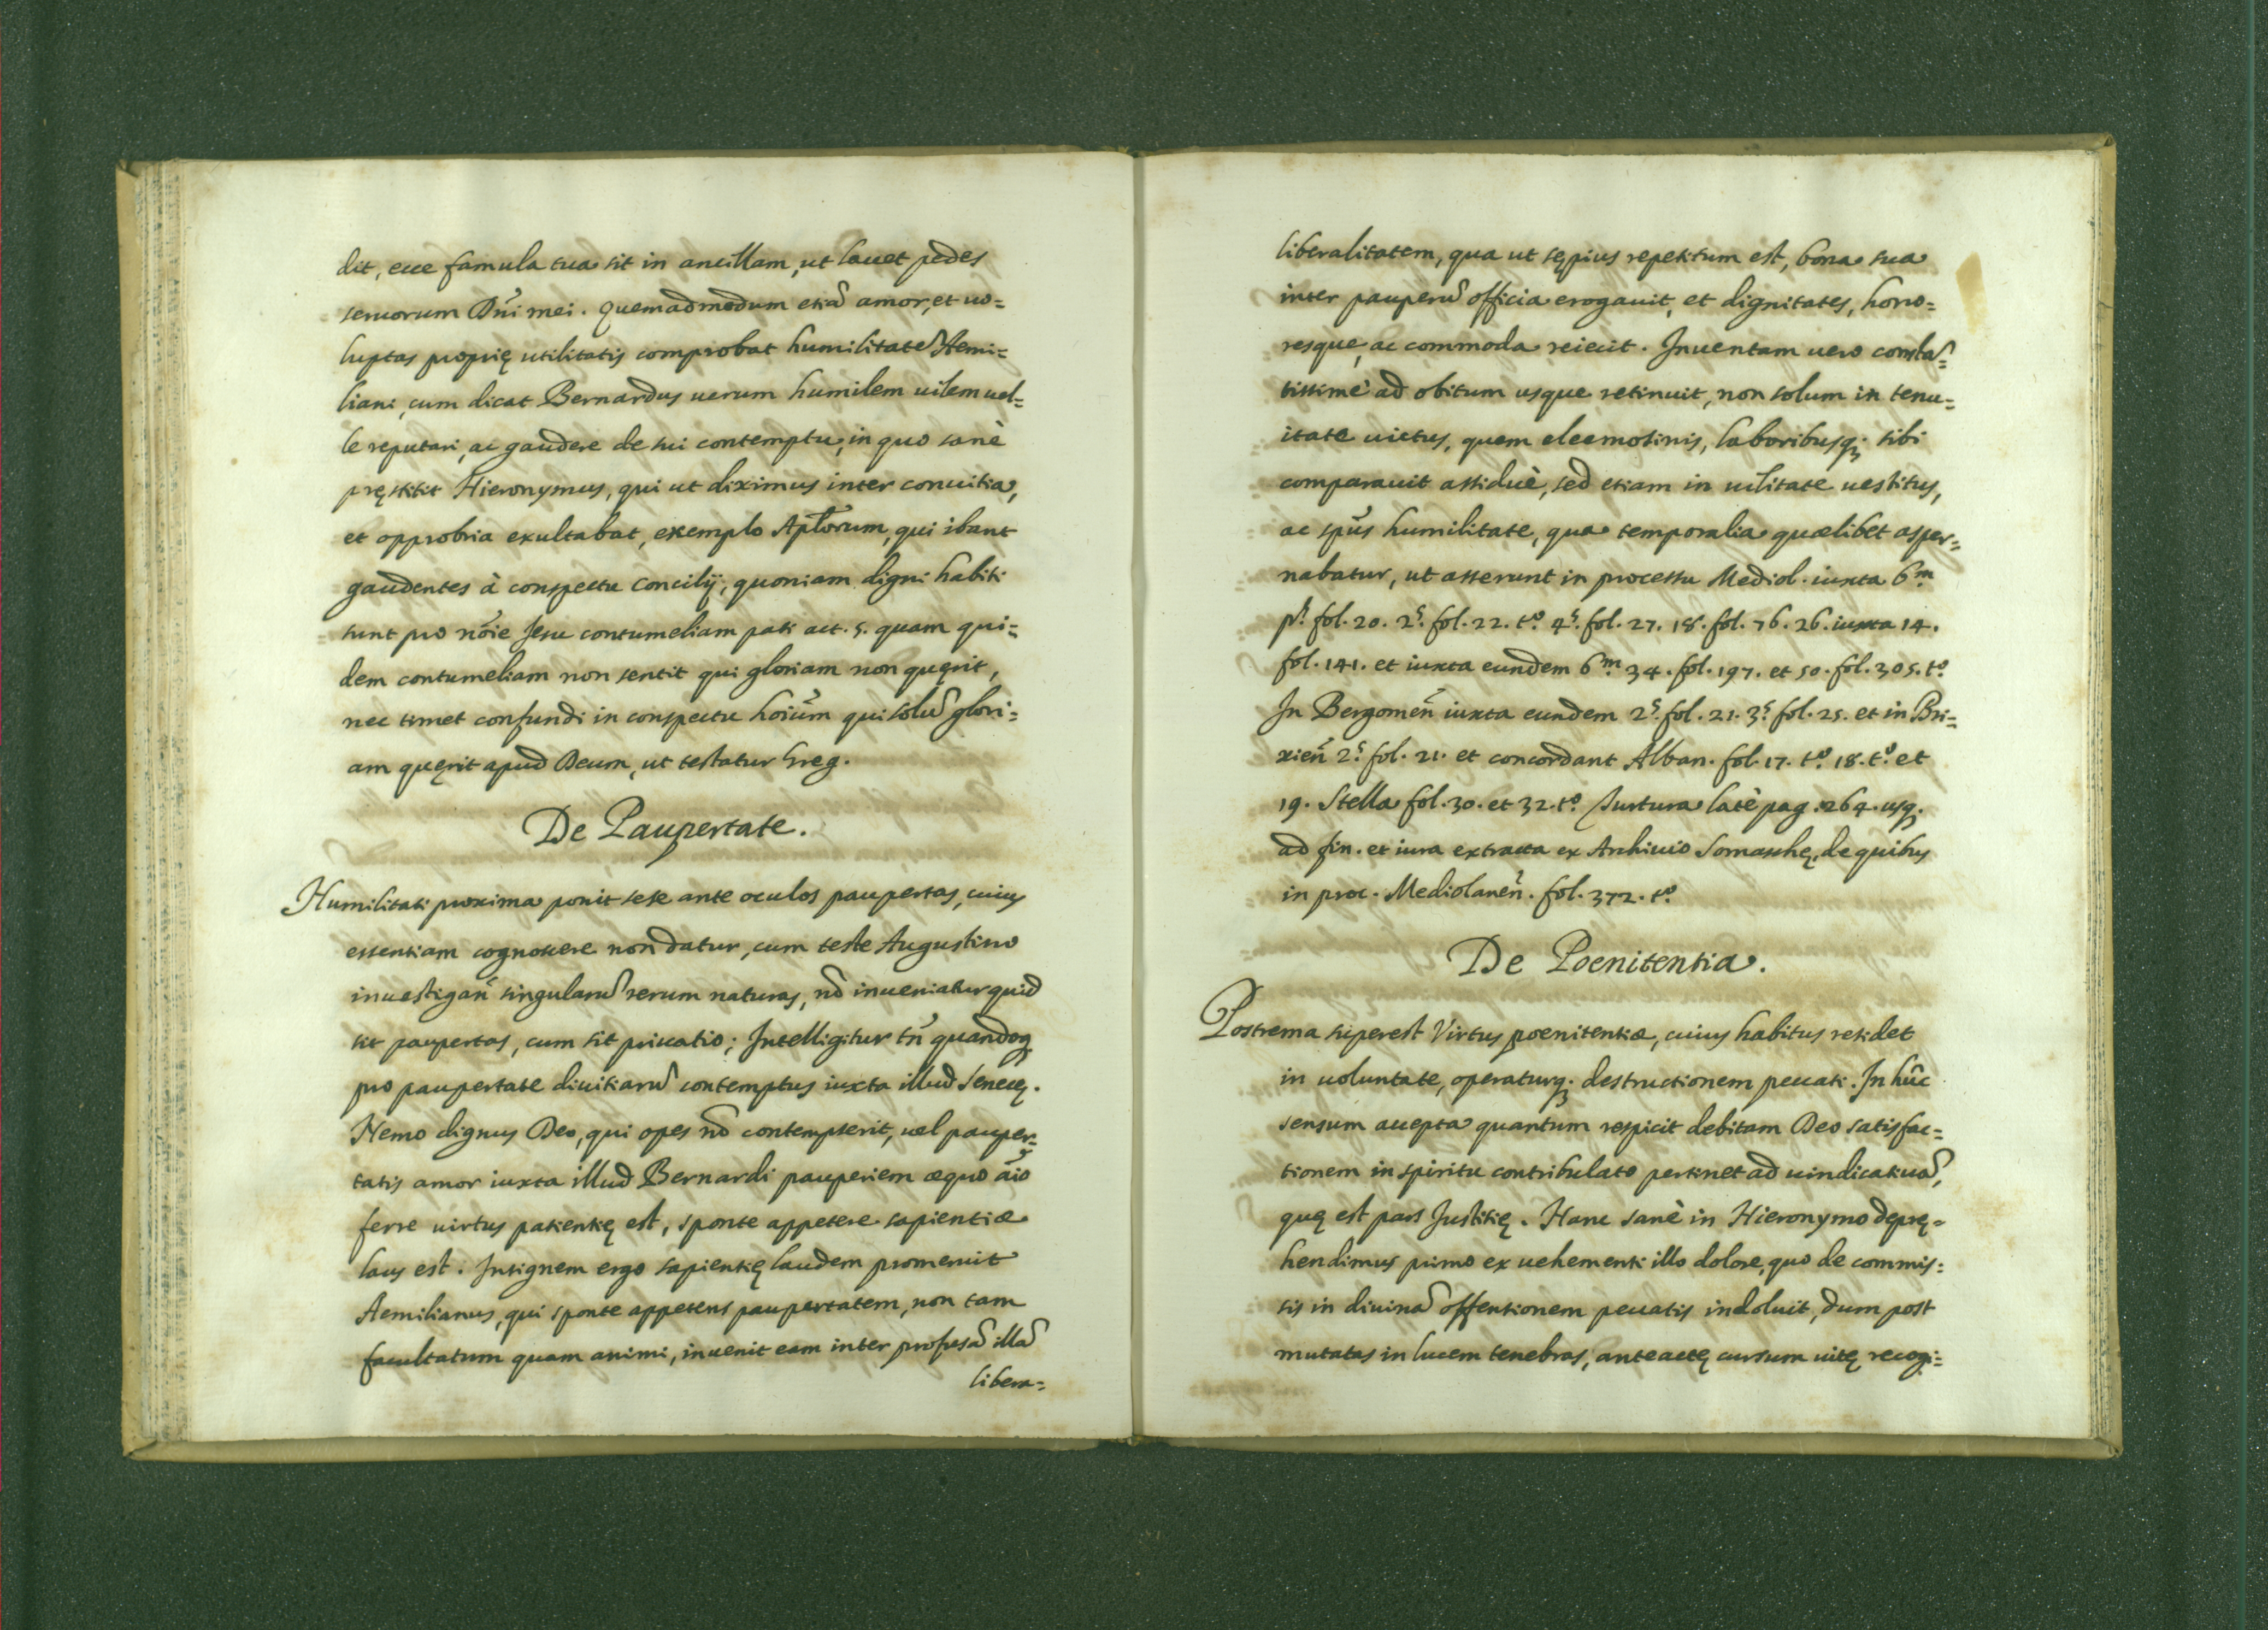 dit, ecce famula tua sit in ancillam, ut lauet pedes
seruorum Dñi mei. quemadmodum etiã amor, et uo=
luptas proprię utilitatis comprobat humilitatẽ Aemi=
liani, cum dicat Bernardus uerum humilem uilem uel=
le reputari, ac gaudere de sui contemptu, in quo sanè
pręstitit Hieronymus, qui ut diximus inter conuitia,
et opprobria exultabat, exemplo Apl̃orum, qui ibant
gaudentes à conspectu Concilij, quoniam digni habiti
sunt pro nõie Jesu contumeliam pati act. 5. quam qui=
dem contumeliam non sentit qui gloriam non quęrit,
nec timet confundi in conspectu hoiũm qui solũ glori=
am quęrit apud Deum, ut testatur Greg.
De Paupertate.
Humilitati proxima ponit sese ante oculos paupertas, cuius
essentiam cognoscere non datur, cum teste Augustino
inuestigañ singularũ rerum naturas, nõ inueniatur quid
sit paupertas, cum sit priuatio; Intelligitur tñ quandoq;
pro paupertate diuitiarũ contemptus iuxta illud Senecę.
Nemo dignus Deo, qui opes nõ contempserit, uel pauper=
tatis amor iuxta illud Bernardi pauperiem æquo aĩo
ferre uirtus patientię est, sponte appetere sapientiæ
laus est. Insignem ergo sapientię laudem promeruit
Aemilianus, qui sponte appetens paupertatem, non tam
facultatum quam animi, inuenit eam inter profusã illã
libera=
liberalitatem, qua ut sępius repetitum est, bona sua
inter pauperũ officia erogauit, et dignitates, hono=
resque, ac commoda reiecit. Inuentam uero constã=
tissimè ad obitum usque retinuit, non solum in tenu=
itate uictus, quem eleemosinis, laboribusq; sibi
comparauit assiduè, sed etiam in uilitate uestitus,
ac spũs humilitate, qua temporalia quælibet asper=
nabatur, ut asserunt in processu Mediol. iuxta 6.m
p.s fol. 20. 2.s fol. 22. t.o 4.s fol. 27. 18. fol. 76. 26. iuxta 14.
fol. 141. et iuxta eundem 6.m 34. fol. 197. et 50. fol. 305. t.o
In Bergomeñ iuxta eundem 2.s fol. 21. 3.s fol. 25. et in Bri=
xieñ 2.s fol. 21. et concordant Alban. fol. 17. t.o 18. t.o et
19. Stella fol. 30. et 32. t.o Turtura latè pag. 264. usq;
ad fin. et iura extracta ex Archiuio Somaschę, de quibus
in proc. Mediolaneñ. fol. 372. t.o
De Poenitentia.
Postrema superest Virtus poenitentiæ, cuius habitus residet
in uoluntate, operaturq; destructionem peccati. In hũc
sensum accepta quantum respicit debitam Deo satisfac=
tionem in spiritu contribulato pertinet ad uindicatiuã,
quę est pars Justitię. Hanc sanè in Hieronymo deprę=
hendimus primo ex uehementi illo dolore, quo de commis=
sis in diuinã offensionem peccatis indoluit, dum post
mutatas in lucem tenebras, anteactę cursum uitę recogi=